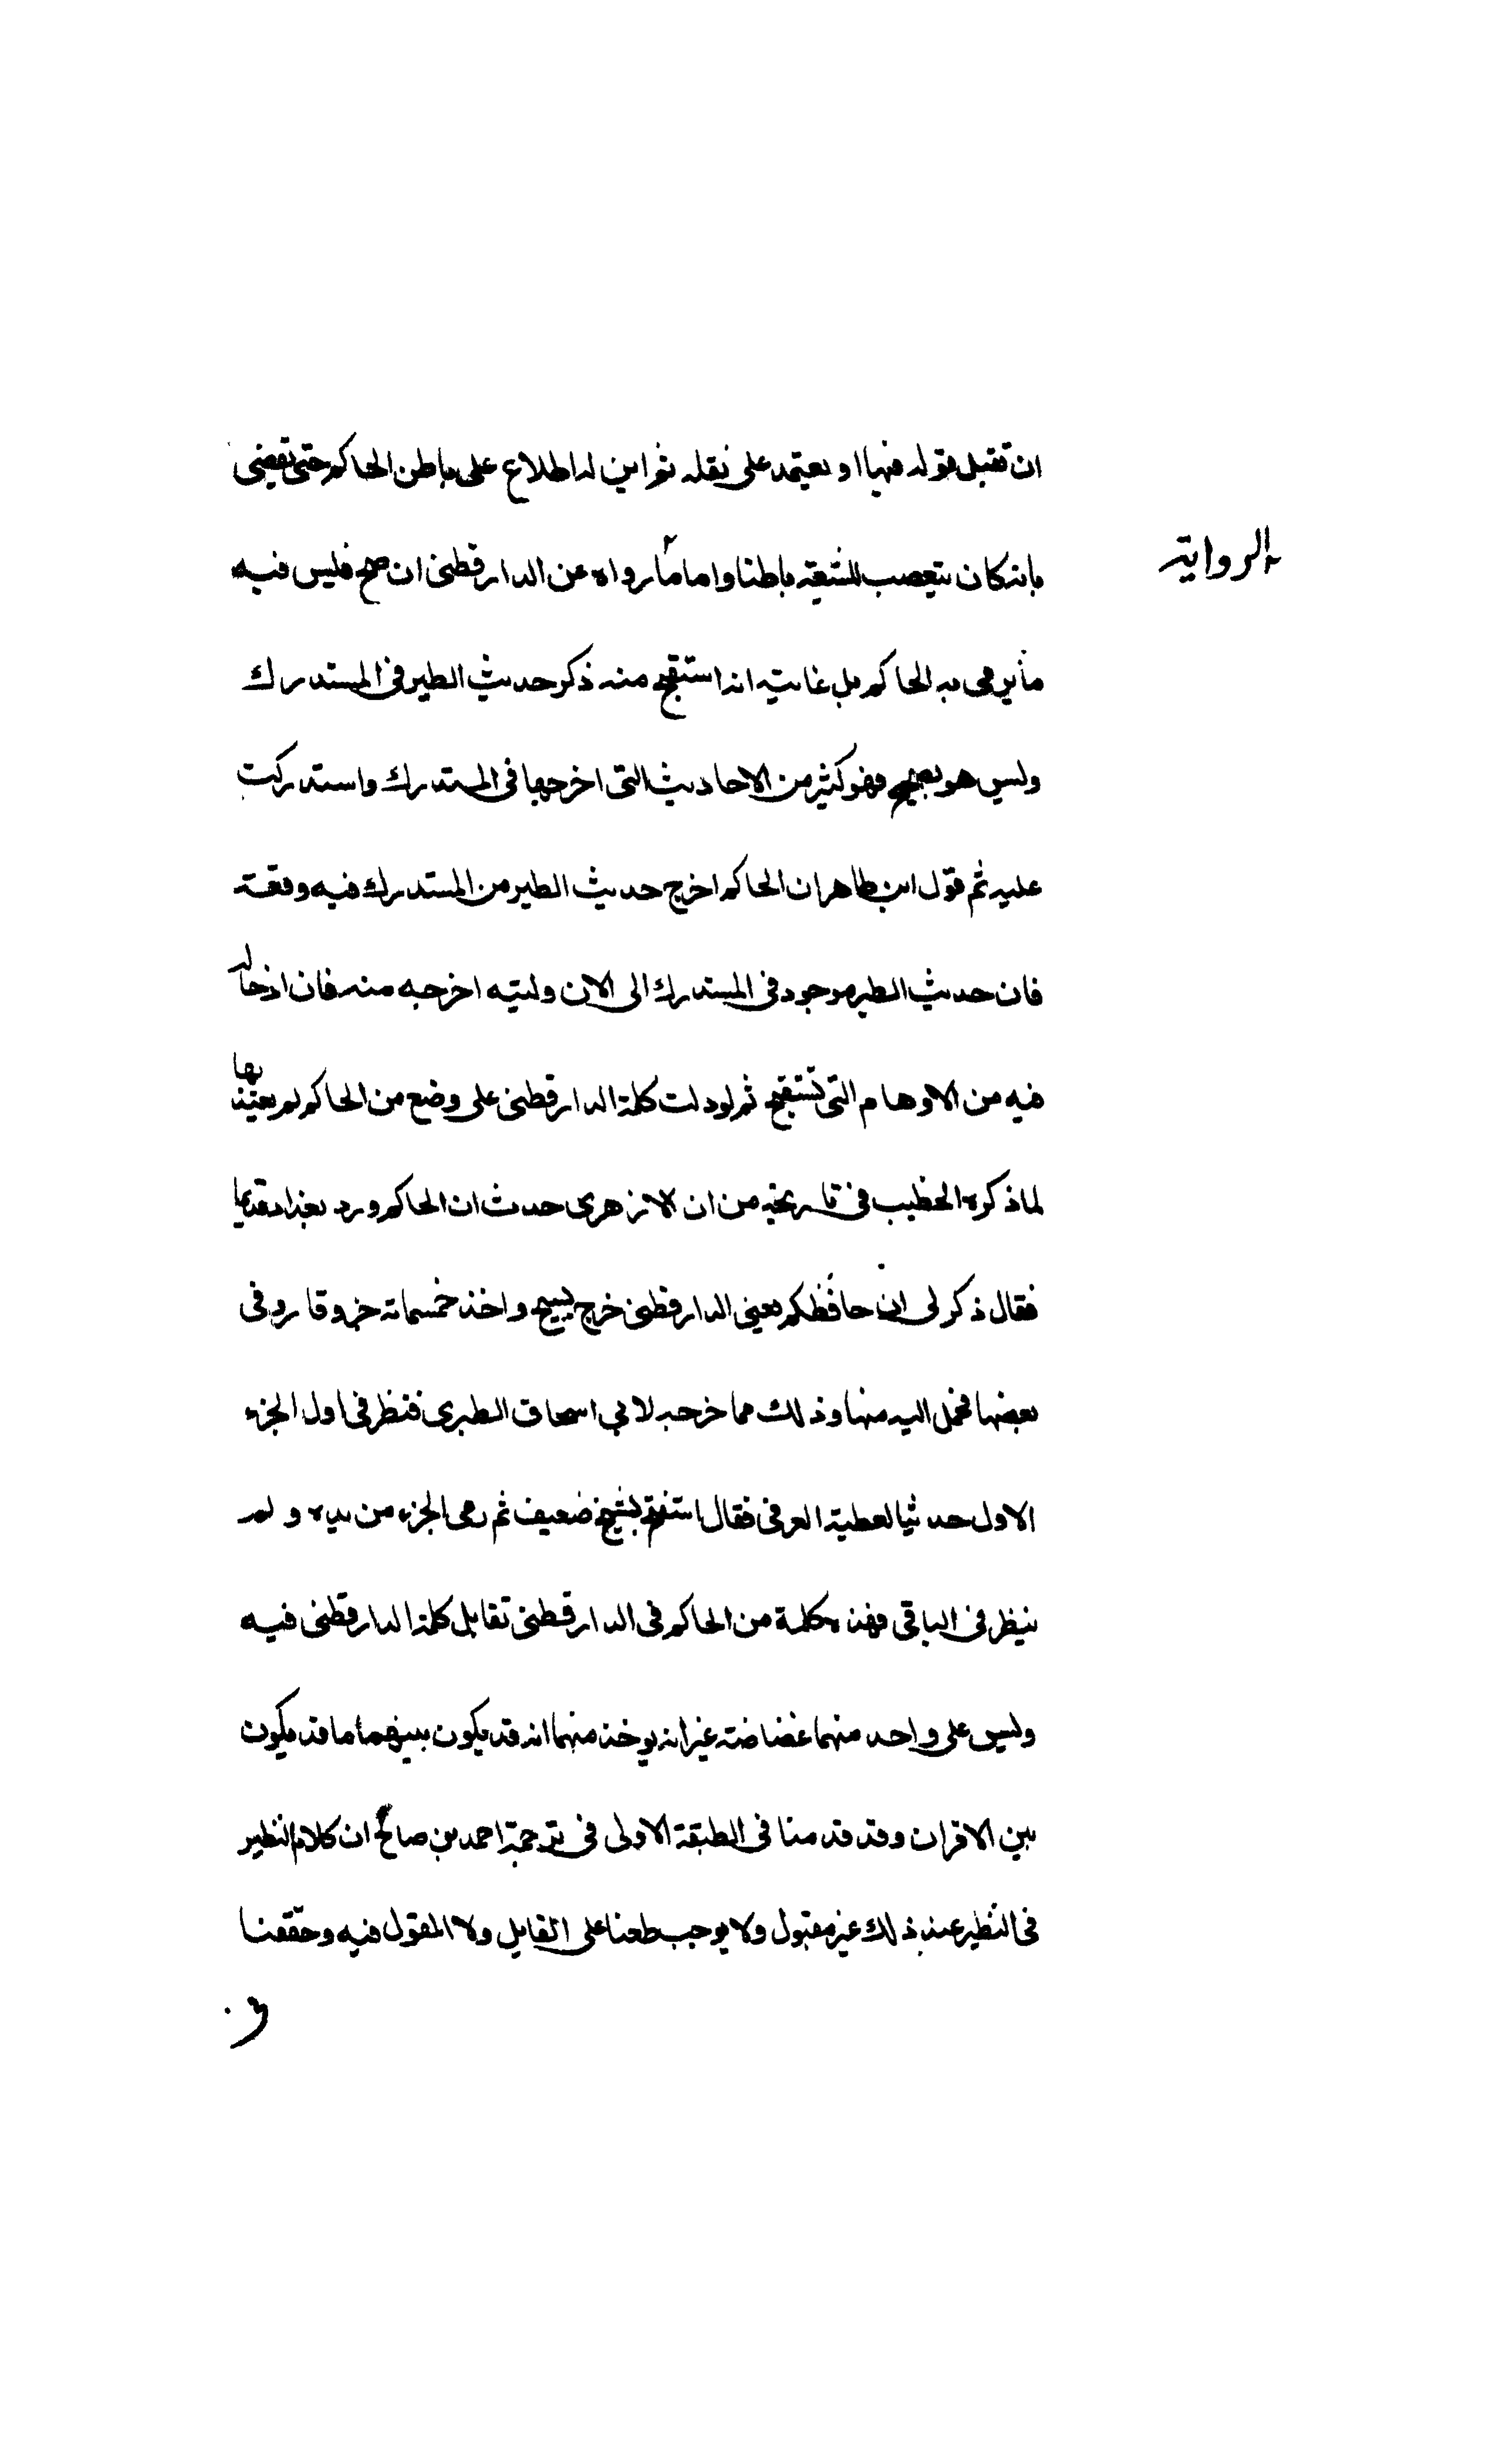 ان تقبل قوله فيها او يعتمد على نقله ثم اين له اطلاع على باطن الحاكم حتى يقضى
بانه كان يتعصب للشيعة باطنا واما ما رواه عن الدارقطنى ان صح فليس فيه
الرواية
ما يرمى به الحاكم بل غايته انه استقبح منه ذكر حديث الطير فى المستدرك
وليس هو بصحيح فهو كثير من الاحاديث التى اخرجها فى المستدرك واستدركت
عليه ثم قول ابن طاهر ان الحاكم اخرج حديث الطير من المستدرك فيه وقفة
فان حديث الطير موجود فى المستدرك الى الان وليته اخرجه منه فان ادخاله
فيه من الاوهام التى تستقبح ثم لو دلت كلمة الدارقطنى على وضع من الحاكم لم يعتد بها
لما ذكره الخطيب فى تاريخه من ان الازهرى حدث ان الحاكم ورد بغداد قديما
فقال ذكر لى ان حافظكم يعنى الدارقطنى خرج لشيخ واحد خمسمائة جزو فارونى
بعضها فحمل اليه منها وذلك مما خرجه لابي اسحاق الطبرى فنظر فى اول الجزء
الاول حديثا لعطية العوفى فقال استفتح بشيخ ضعيف ثم رمى الجزء من يده ولم
ينظر فى الباقى فهذه كلمة من الحاكم فى الدارقطنى تقابل كلمة الدارقطنى فيه
وليس على واحد منهما غضاضة غير انه يوخذ منهما انه قد يكون بينهما ما قد يكون
بين الاقران وقد قدمنا فى الطبقة الاولى فى ترجمة احمد بن صالح ان كلام النظير
فى النظير عند ذلك غير مقبول ولا يوجب طعنا على القايل ولا المقول فيه وحققنا